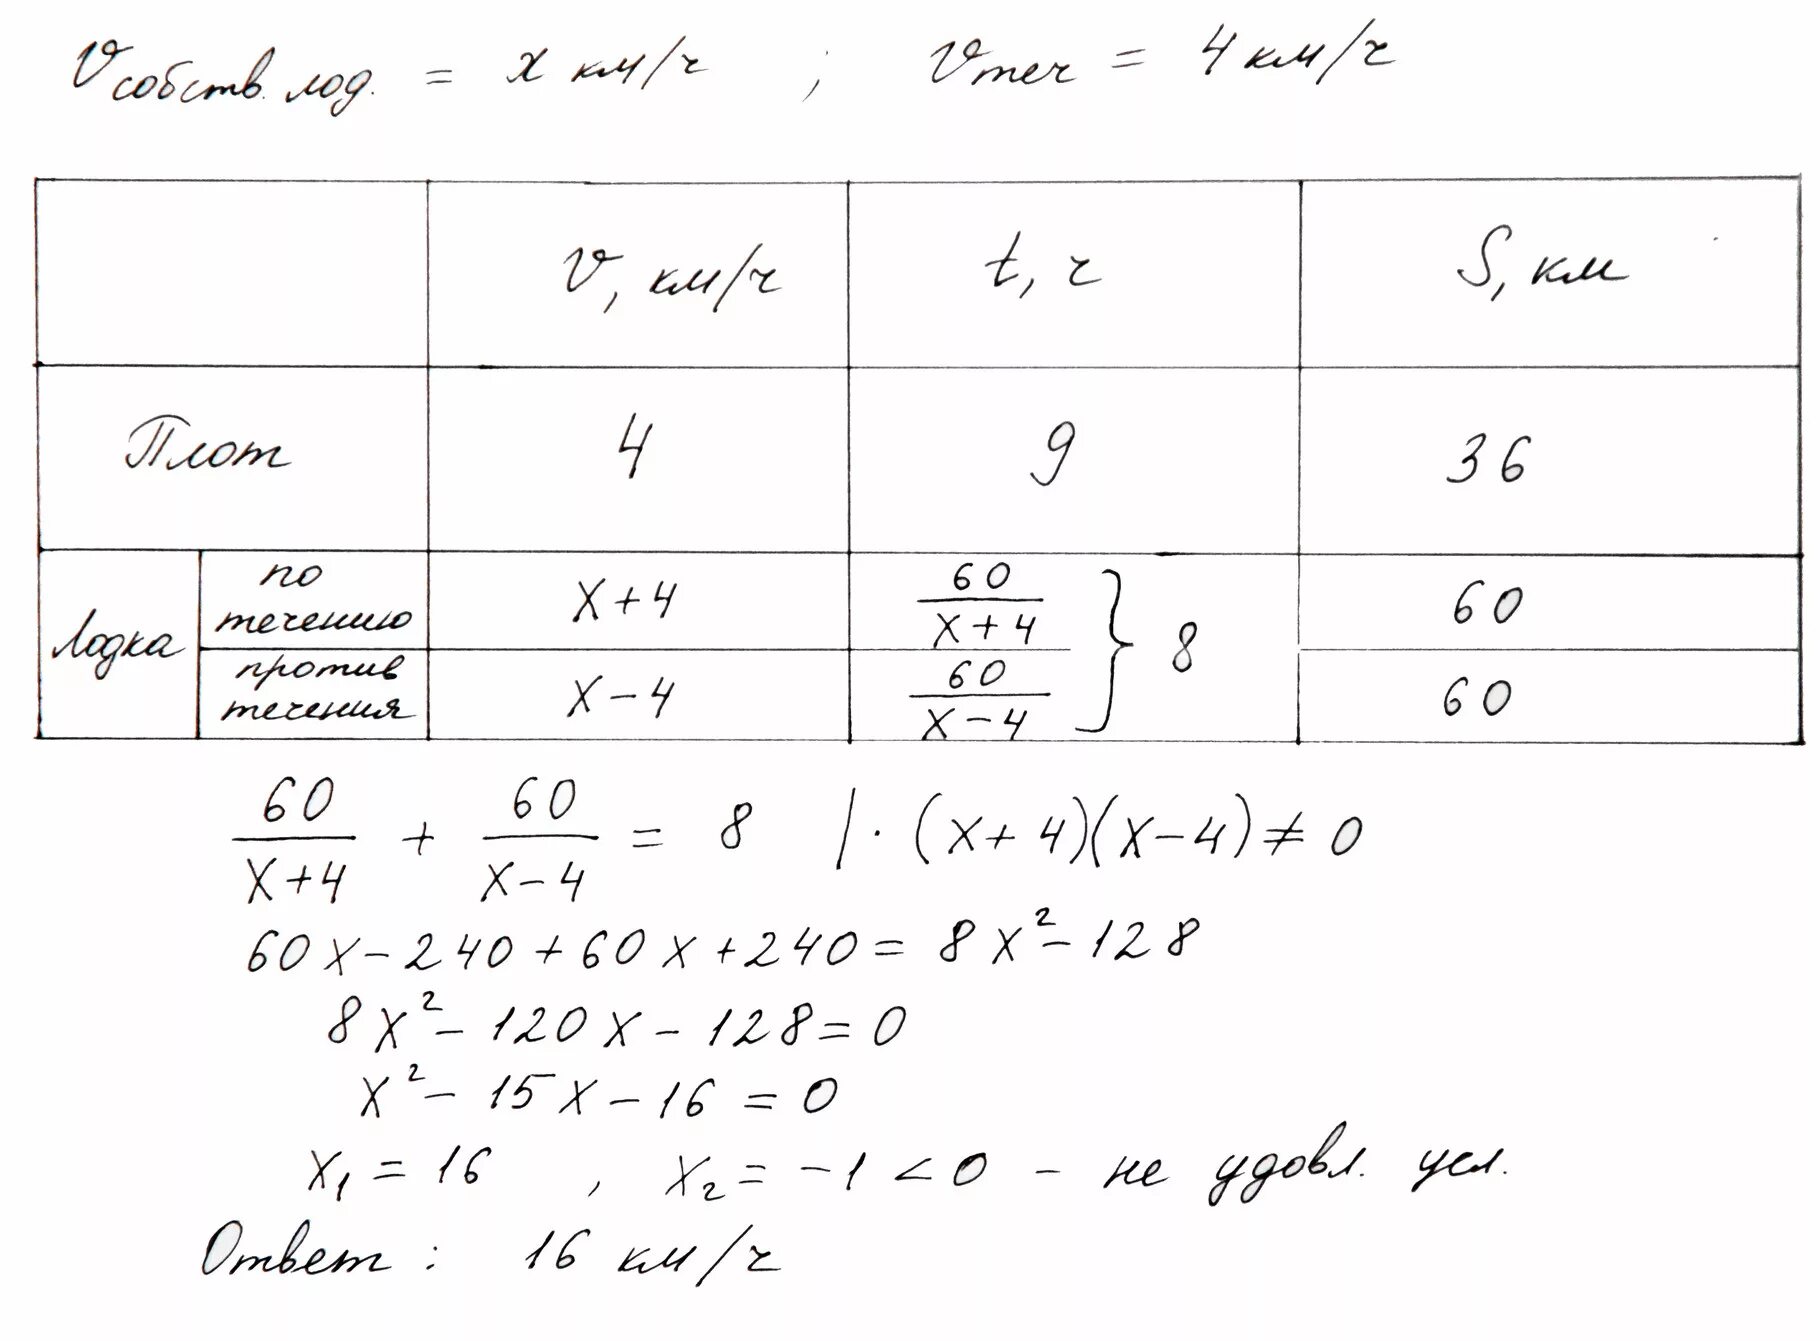 v собств. лод. = x км/ч ; v теч = 4 км/ч
v, км/ч t, ч S, км
Плот 4 9 36
Лодка по течению x+4 60/(x+4) } 8 60
против течения x-4 60/(x-4) 60
60/(x+4) + 60/(x-4) = 8 | · (x+4)(x-4) ≠ 0
60x - 240 + 60x + 240 = 8x² - 128
8x² - 120x - 128 = 0
x² - 15x - 16 = 0
x₁ = 16 , x₂ = -1 < 0 - не удовл. усл.
Ответ : 16 км/ч